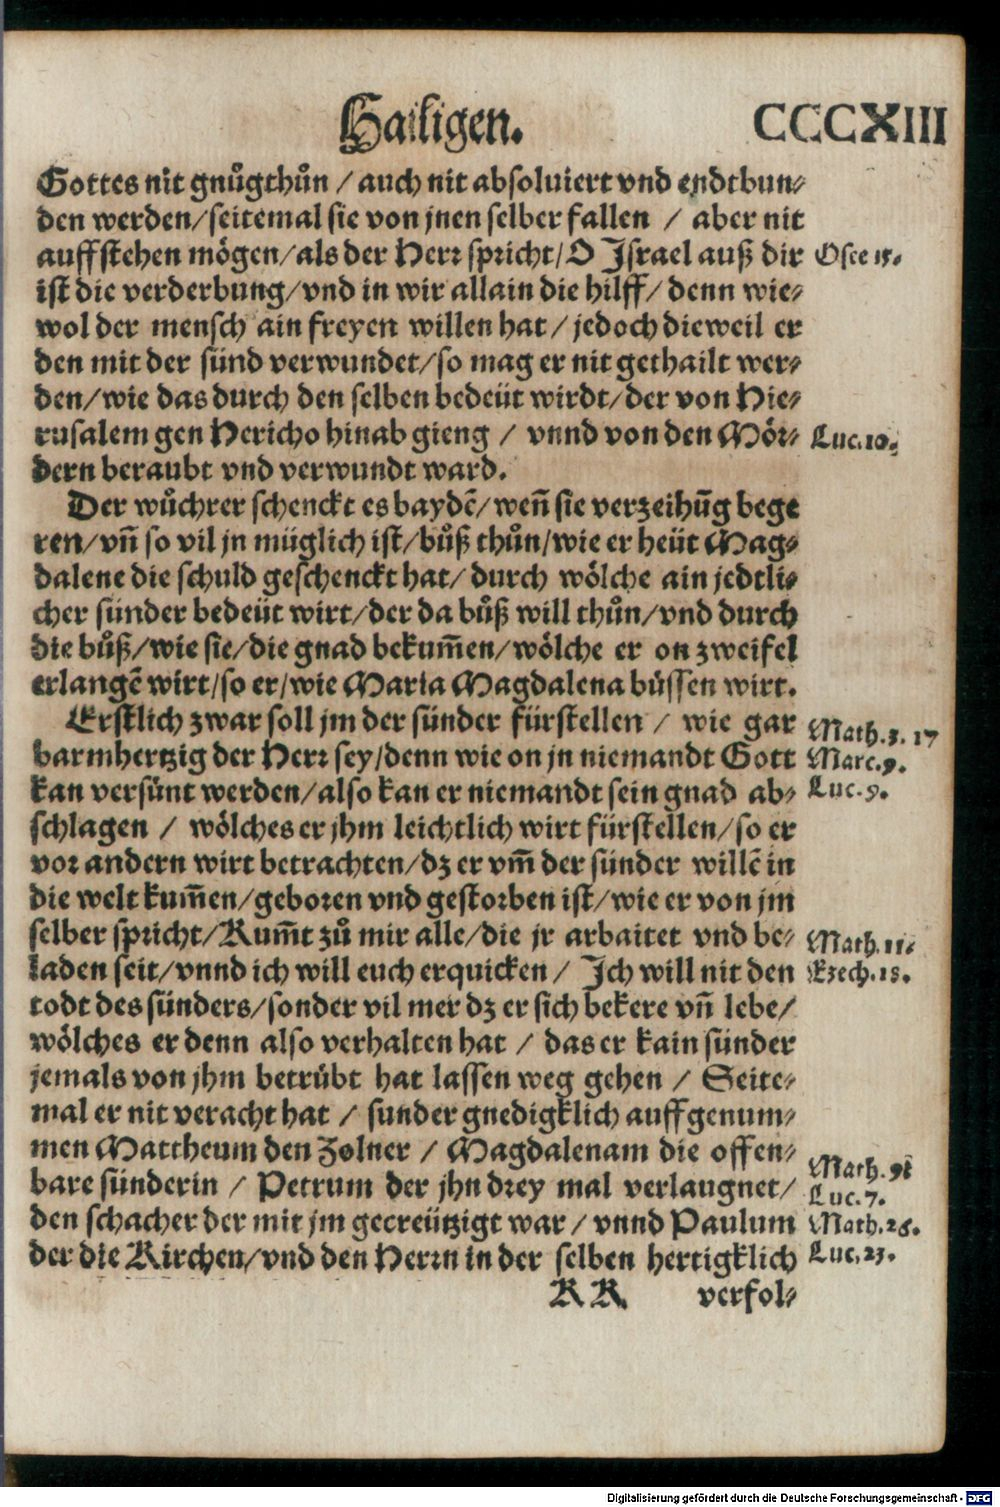 Hailigen. CCCXIII
Gottes nit gnůgthůn / auch nit absoluiert vnd endtbun⸗
den werden/seitemal sie von jnen selber fallen / aber nit
auffstehen mögen/als der Herr spricht/O Israel auß dir Osee 13.
ist die verderbung/vnd in wir allain die hilff/ denn wie⸗
wol der mensch ain freyen willen hat / jedoch dieweil er
den mit der sünd verwundet/so mag er nit gethailt wer⸗
den/wie das durch den selben bedeüt wirdt/der von Hie⸗
rusalem gen Hericho hinab gieng / vnnd von den Mör⸗ Luc.10.
dern beraubt vnd verwundt ward.
Der wůchrer schenckt es baydẽ/ weñ sie verzeihũg bege
ren/vñ so vil jn müglich ist/bůß thůn/wie er heüt Mag⸗
dalene die schuld geschenckt hat/ durch wölche ain jedtli⸗
cher sünder bedeüt wirt/der da bůß will thůn/vnd durch
die bůß/wie sie/die gnad bekum̃en/wölche er on zweifel
erlangẽ wirt/so er/wie Maria Magdalena büssen wirt.
Erstlich zwar soll jm der sünder fürstellen / wie gar Math.3. 17
barmhertzig der Herr sey/denn wie on jn niemandt Gott Marc.9.
kan versünt werden/also kan er niemandt sein gnad ab⸗ Luc.9.
schlagen / wölches er jhm leichtlich wirt fürstellen/so er
vor andern wirt betrachten/dz er vm̃ der sünder willẽ in
die welt kum̃en/geboren vnd gestorben ist/wie er von jm
selber spricht/Kum̃t zů mir alle/die jr arbaitet vnd be⸗ Math.11.
laden seit/vnnd ich will euch erquicken / Ich will nit den Ezech.18.
todt des sünders/sonder vil mer dz er sich bekere vñ lebe/
wölches er denn also verhalten hat / das er kain sünder
jemals von jhm betrübt hat lassen weg gehen / Seite⸗
mal er nit veracht hat / sunder gnedigklich auffgenum⸗
men Mattheum den Zolner / Magdalenam die offen⸗ Math.9
bare sünderin / Petrum der jhn drey mal verlaugnet/ Luc.7.
den schacher der mit jm gecreützigt war / vnnd Paulum Math.26.
der die Kirchen/vnd den Herrn in der selben hertigklich Luc.23.
RR verfol⸗
Digitalisierung gefördert durch die Deutsche Forschungsgemeinschaft - DFG